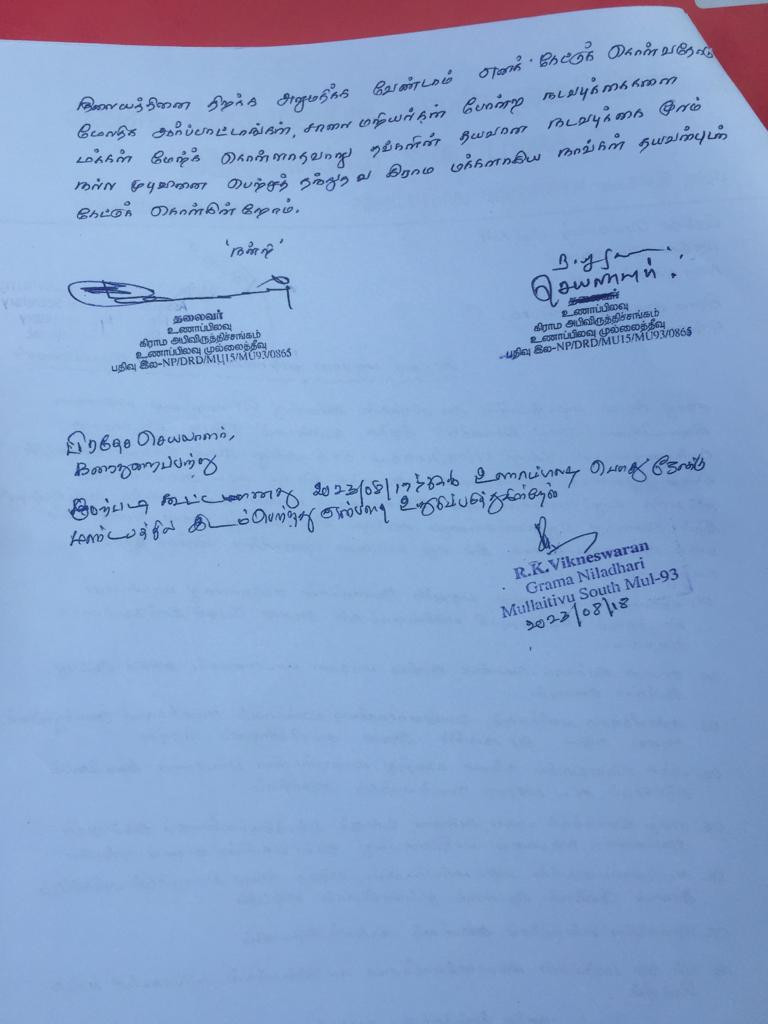 நிலையத்தினை திறக்க அனுமதிக்க வேண்டாம் எனக் கேட்டுக் கொள்வதோடு
மேலதிக ஆர்ப்பாட்டங்கள், சாலை மறியல்கள் போன்ற நடவடிக்கைகளை
மக்கள் மேற்க் கொள்ளாதவாறு தங்களின் தயவான நடவடிக்கை மூலம்
நல்ல முடிவினை பெற்றுத் தருமாறு கிராம மக்களாகிய நாங்கள் தயவுடன்
கேட்டுக் கொள்கின்றோம்.
'நன்றி'
தலைவர்
உணாப்பிலவு
கிராம அபிவிருத்திச்சங்கம்
உணாப்பிலவு முல்லைத்தீவு
பதிவு இல-NP/DRD/MU15/MU93/0865
செயலாளர்
தலைவர்
உணாப்பிலவு
கிராம அபிவிருத்திச்சங்கம்
உணாப்பிலவு முல்லைத்தீவு
பதிவு இல-NP/DRD/MU15/MU93/0865
பிரதேச செயலாளர்,
கரைதுறைப்பற்று
இப்படி கூட்டமானது 2023/08/17 உணாப்பிலவு பொது நோக்கு
மண்டபத்தில் இடம்பெற்றது என்பதை உறுதிப்படுத்துகின்றேன்
R.K.Vikneswaran
Grama Niladhari
Mullaitivu South Mul-93
2023/08/18